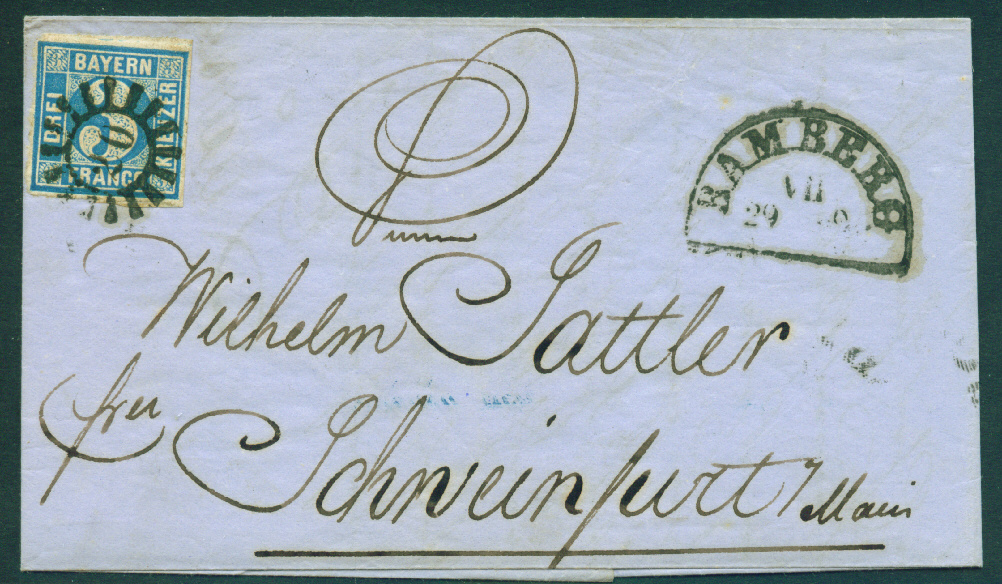 BAYERN
DREI
KREUZER
FRANCO
BAMBERG
VII
29
Wilhelm Sattler
frei
Schweinfurt / Main